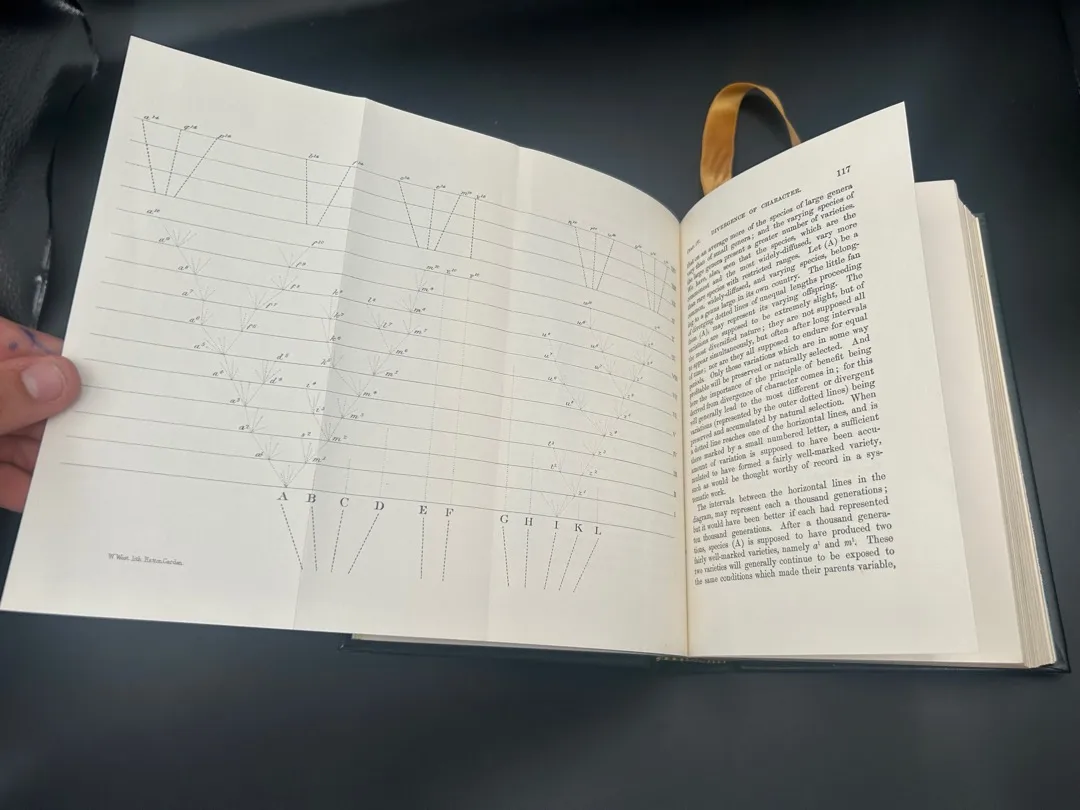 A B C D E F G H I K L
W. West lith. Hatton Garden.
CHAP. IV. DIVERGENCE OF CHARACTER. 117
that on an average more of the species of large genera
vary than of small genera; and the varying species of
the large genera present a greater number of varieties.
We have, also, seen that the species, which are the
commonest and the most widely-diffused, vary more
than rare species with restricted ranges. Let (A) be a
common, widely-diffused, and varying species, belong-
ing to a genus large in its own country. The little fan
of diverging dotted lines of unequal lengths proceeding
from (A), may represent its varying offspring. The
variations are supposed to be extremely slight, but of
the most diversified nature; they are not supposed all
to appear simultaneously, but often after long intervals
of time; nor are they all supposed to endure for equal
periods. Only those variations which are in some way
profitable will be preserved or naturally selected. And
here the importance of the principle of benefit being
derived from divergence of character comes in; for this
will generally lead to the most different or divergent
variations (represented by the outer dotted lines) being
preserved and accumulated by natural selection. When
a dotted line reaches one of the horizontal lines, and is
there marked by a small numbered letter, a sufficient
amount of variation is supposed to have been accu-
mulated to have formed a fairly well-marked variety,
such as would be thought worthy of record in a sys-
tematic work.
The intervals between the horizontal lines in the
diagram, may represent each a thousand generations;
but it would have been better if each had represented
ten thousand generations. After a thousand genera-
tions, species (A) is supposed to have produced two
fairly well-marked varieties, namely a¹ and m¹. These
two varieties will generally continue to be exposed to
the same conditions which made their parents variable,